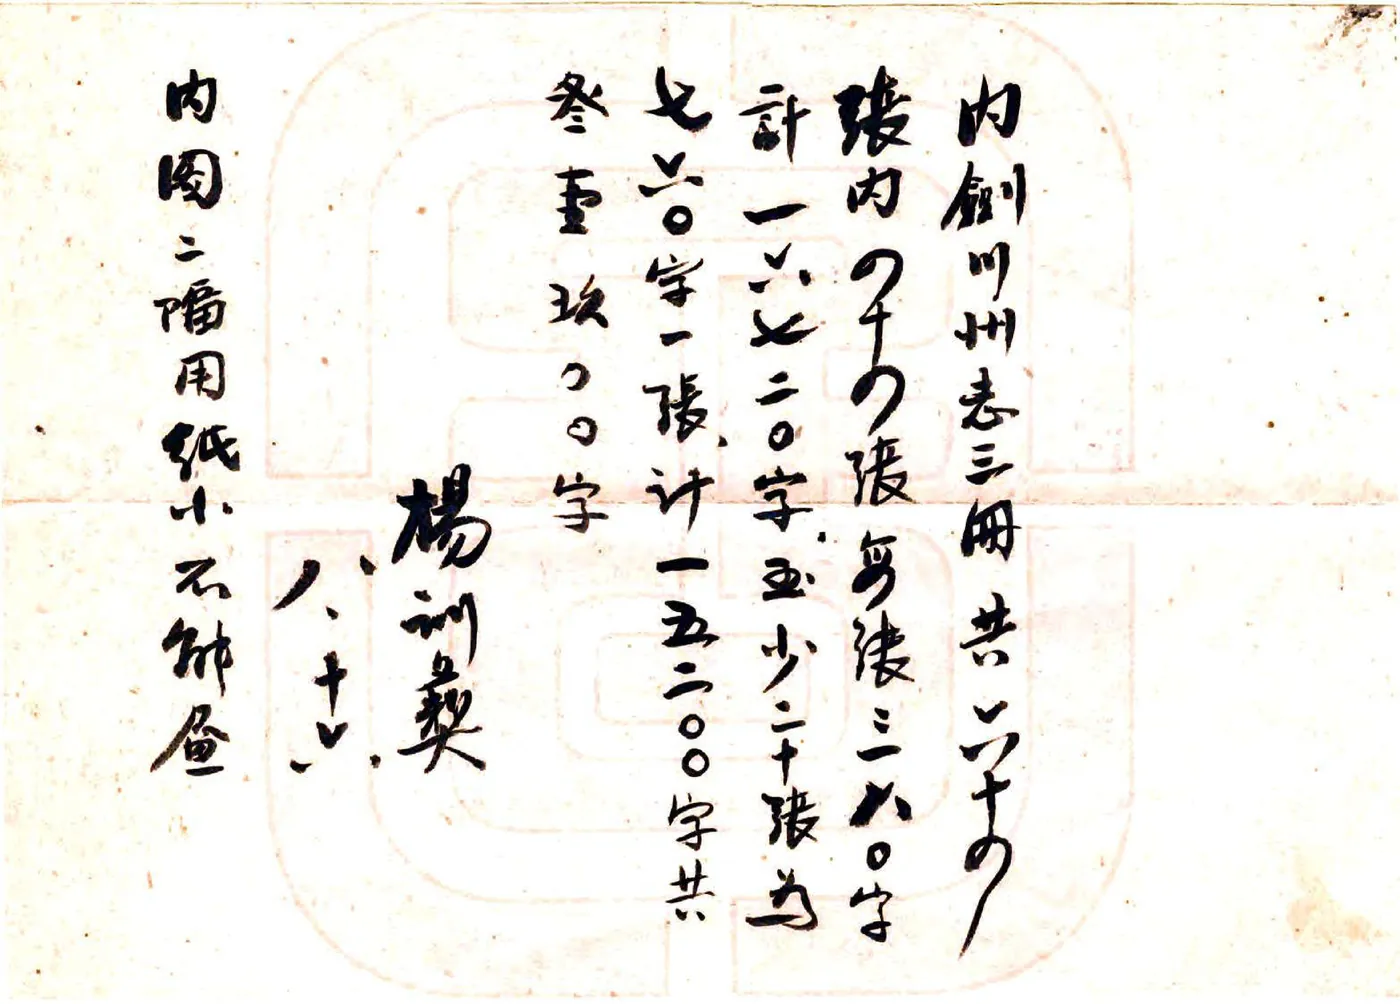 内劍川州志三冊共六十四
張内四十四張每張三八〇字
計一六七二〇字、至少二十張為
七六〇字一張、計一五二〇〇字共
叁壹玖〇〇字
楊訓彝
八、十六、
内图二幅用紙小不能畫